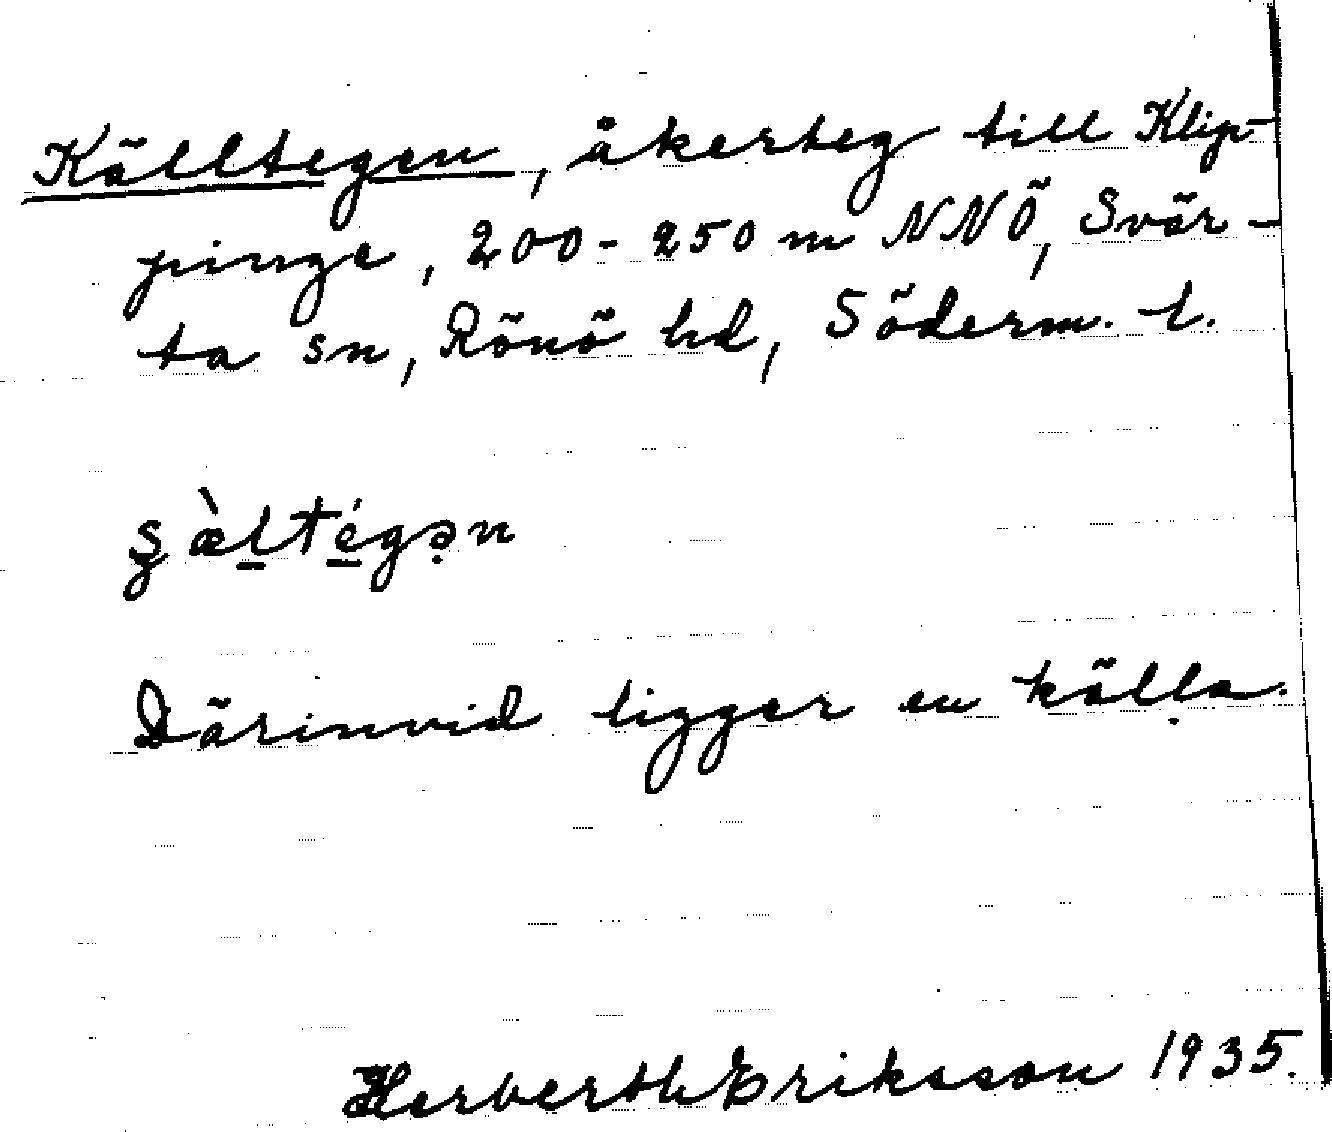 Källtegen, åkerteg till Klip-
pinge, 200-250 m NNÖ, Svär-
ta sn, Rönö hd, Söderm. l.
ʂæ̀ltégə̣n
Därinvid ligger en källa.
Herberth Eriksson 1935.